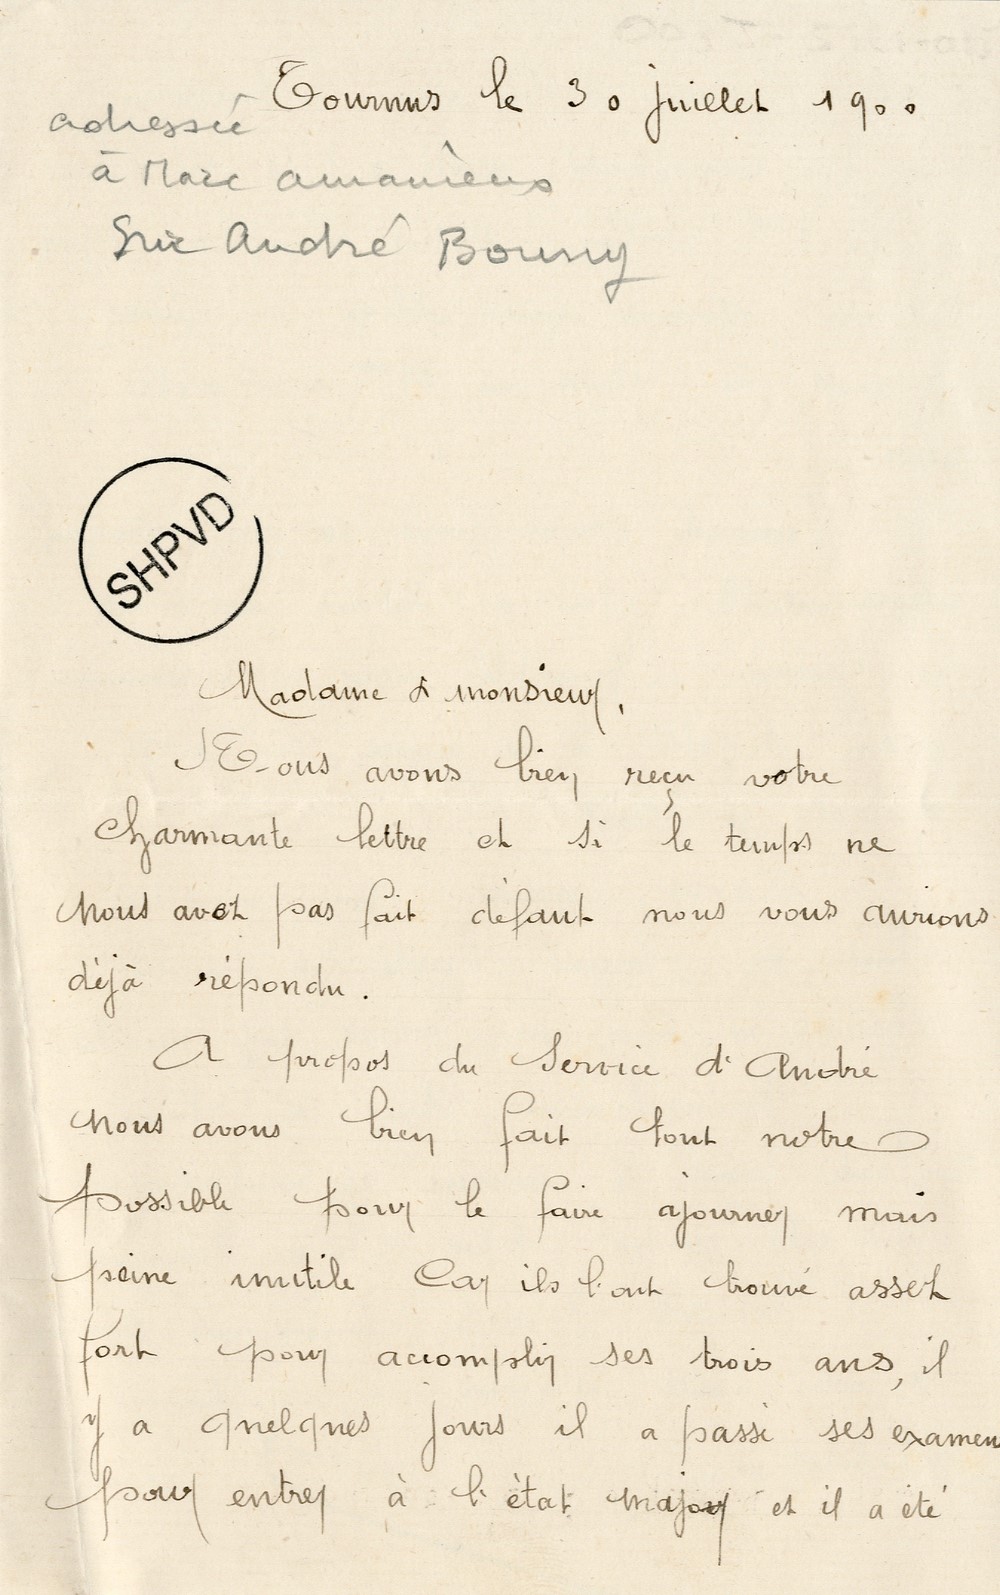 Tournus le 30 juillet 1900
adressée
à Marc Amanieux
Sur André Bourny
SHPVD
Madame & monsieur,
Nous avons bien reçu votre
charmante lettre et si le temps ne
nous avez pas fait défaut nous vous aurions
déjà répondu.
A propos du Service d'André
nous avons bien fait tout notre
possible pour le faire ajourner mais
peine inutile Car ils l'ont trouvé assez
fort pour accomplir ses trois ans, il
y a quelques jours il a passé ses examen
pour entrer à l'état major et il a été